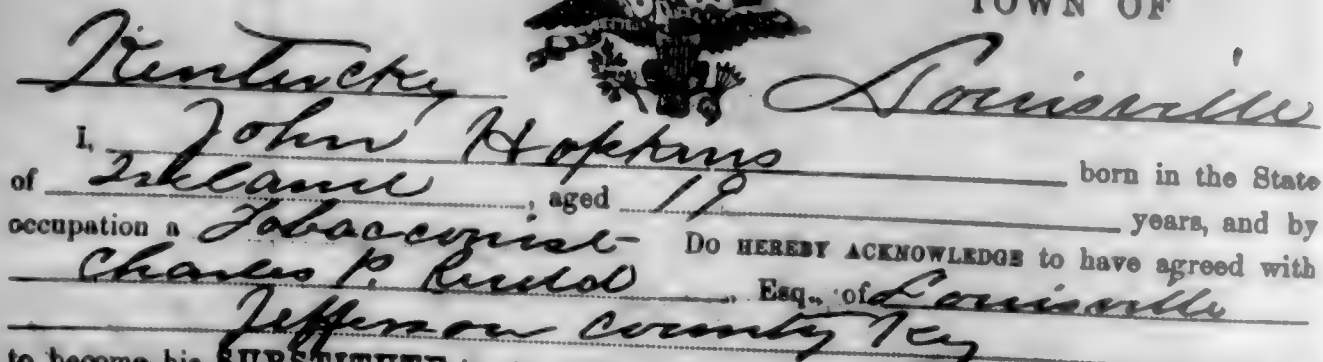 TOWN OF
Kentucky Louisville
I, John Hopkins born in the State
of Ireland, aged 19 years, and by
occupation a Tobacconist Do HEREBY ACKNOWLEDGE to have agreed with
Charles P. Rudd, Esq., of Louisville
Jefferson County Ky
to become his SUBSTITUTE